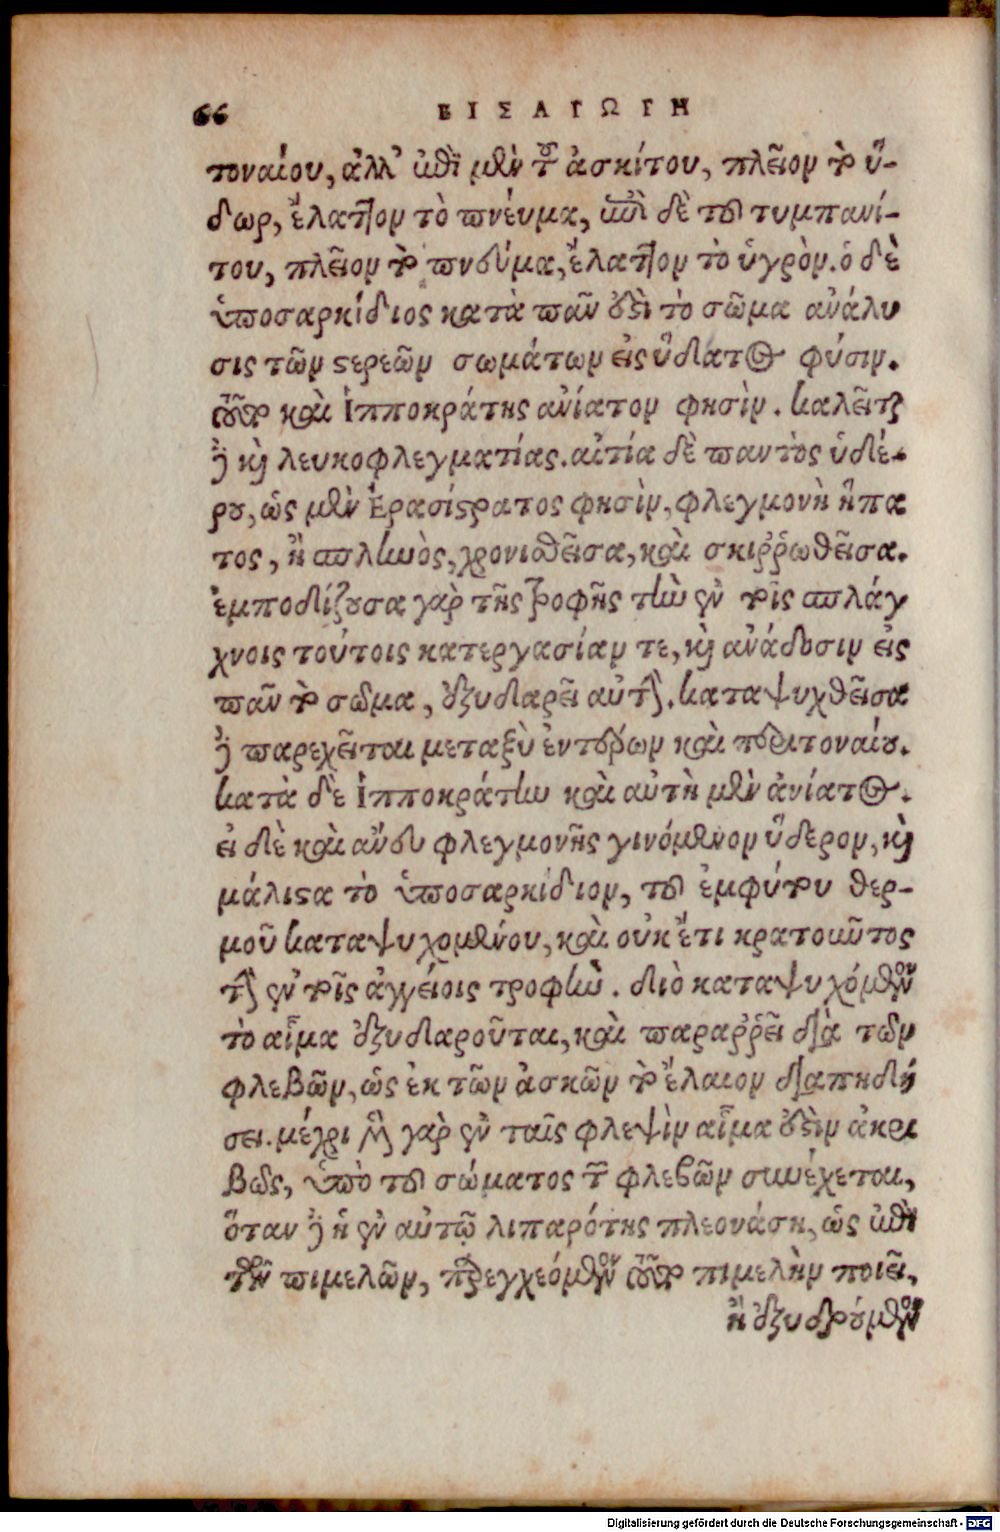 66 ΕΙΣΑΓΩΓΗ
τοναίου, ἀλλ' ἐπὶ μὲν τοῦ ἀσκίτου, πλεῖον τὸ ὕ-
δωρ, ἔλαττον τὸ πνεύμα, ἐπὶ δὲ τοῦ τυμπανί-
του, πλεῖον τὸ πνεύμα, ἔλαττον τὸ ὑγρὸν. ὁ δὲ
ὑποσαρκίδιος κατὰ πᾶν ἐστὶ τὸ σῶμα ἀνάλυ
σις τῶν στερεῶν σωμάτων εἰς ὕδατος φύσιν.
τοῦτο καὶ Ἱπποκράτης ἀνίατον φησὶν. καλεῖται
δὲ καὶ λευκοφλεγματίας. αἰτία δὲ παντὸς ὑδέ-
ρου, ὡς μὲν Ἐρασίστρατος φησὶν, φλεγμονὴ ἥπα
τος, ἢ σπληνὸς, χρονισθεῖσα, καὶ σκιῤῥωθεῖσα.
ἐμποδίζουσα γὰρ τῆς τροφῆς τὴν ἐν τοῖς σπλάγ
χνοις τούτοις κατεργασίαν τε, καὶ ἀνάδοσιν εἰς
πᾶν τὸ σῶμα, ἐξυδαρεῖ αὐτήν. καταψυχθεῖσα
δὲ παρεχεῖται μεταξὺ ἐντέρων καὶ περιτοναίου.
κατὰ δὲ Ἱπποκράτην καὶ αὐτὴ μὲν ἀνίατος.
εἰ δὲ καὶ ἄνευ φλεγμονῆς γινόμενον ὕδερον, καὶ
μάλιστα τὸ ὑποσαρκίδιον, τοῦ ἐμφύτου θερ-
μοῦ καταψυχομένου, καὶ οὐκ ἔτι κρατοῦντος
τὴν ἐν τοῖς ἀγγείοις τροφὴν. διὸ καταψυχόμενον
τὸ αἷμα ἐξυδαροῦται, καὶ παραῤῥεῖ διὰ τῶν
φλεβῶν, ὡς ἐκ τῶν ἀσκῶν τὸ ἔλαιον διαπηδή
σει. μέχρι μὲν γὰρ ἐν ταῖς φλεψὶν αἷμα ἐστὶν ἀκρι
βῶς, ὑπὸ τοῦ σώματος τῶν φλεβῶν συνέχεται,
ὅταν δὲ ἡ ἐν αὐτῷ λιπαρότης πλεονάσῃ, ὡς ἐπὶ
τῶν πιμελῶν, παρεγχεόμενον τοῦτο πιμελὴν ποιεῖ,
ἢ ἐξυδρούμενον
Digitalisierung gefördert durch die Deutsche Forschungsgemeinschaft - DFG